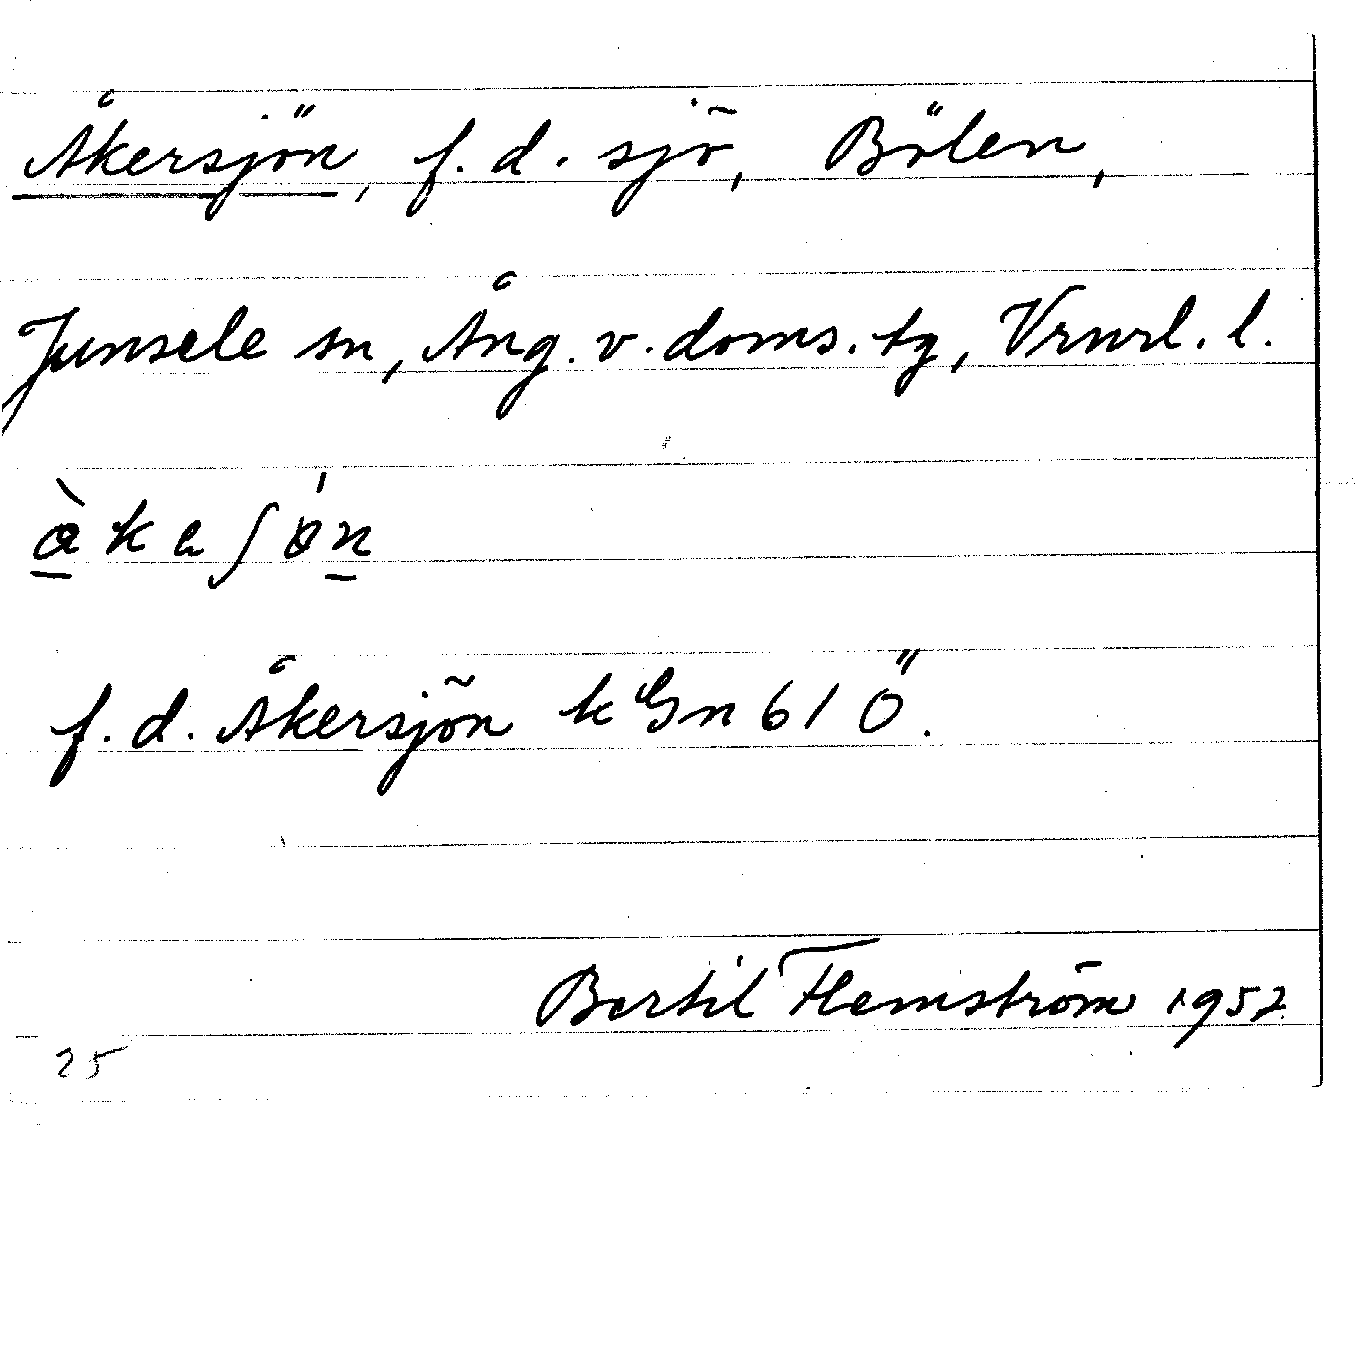 Åkersjön, f. d. sjö, Bölen,
Junsele sn, Ång. v. doms. tg, Vrnrl. l.
f. d. Åkersjön k Gn 61 Ö.
Bertil Flemström 1952
25